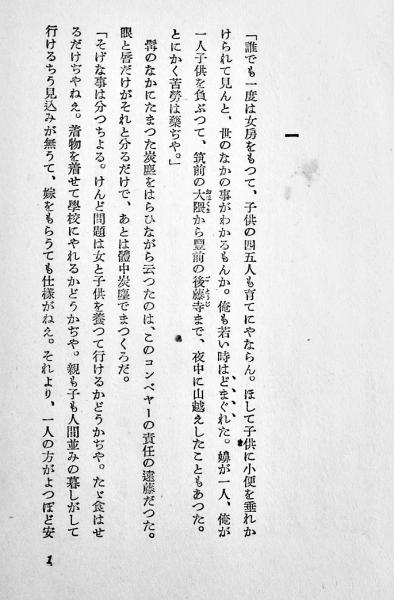 一
「誰でも一度は女房をもつて、子供の四五人も育てにやならん。ほして子供に小便を垂れか
けられて見んと、世のなかの事がわかるもんか。俺も若い時はどまぐれた。嬶が一人、俺が
一人子供を負ぶつて、筑前の大隈から豐前の後藤寺まで、夜中に山越えしたこともあつた。
とにかく苦勞は藥ぢや。」
髯のなかにたまつた炭塵をはらひながら云つたのは、このコンベヤーの責任の遠藤だつた。
眼と唇だけがそれと分るだけで、あとは體中炭塵でまつくろだ。
「そげな事は分つちよる。けんど問題は女と子供を養つて行けるかどうかぢや。たゞ食はせ
るだけぢやねえ。着物を着せて學校にやれるかどうかぢや。親も子も人間並みの暮しがして
行けるちう見込みが無うて、嫁をもらうても仕樣がねえ。それより、一人の方がよつぽど安
1